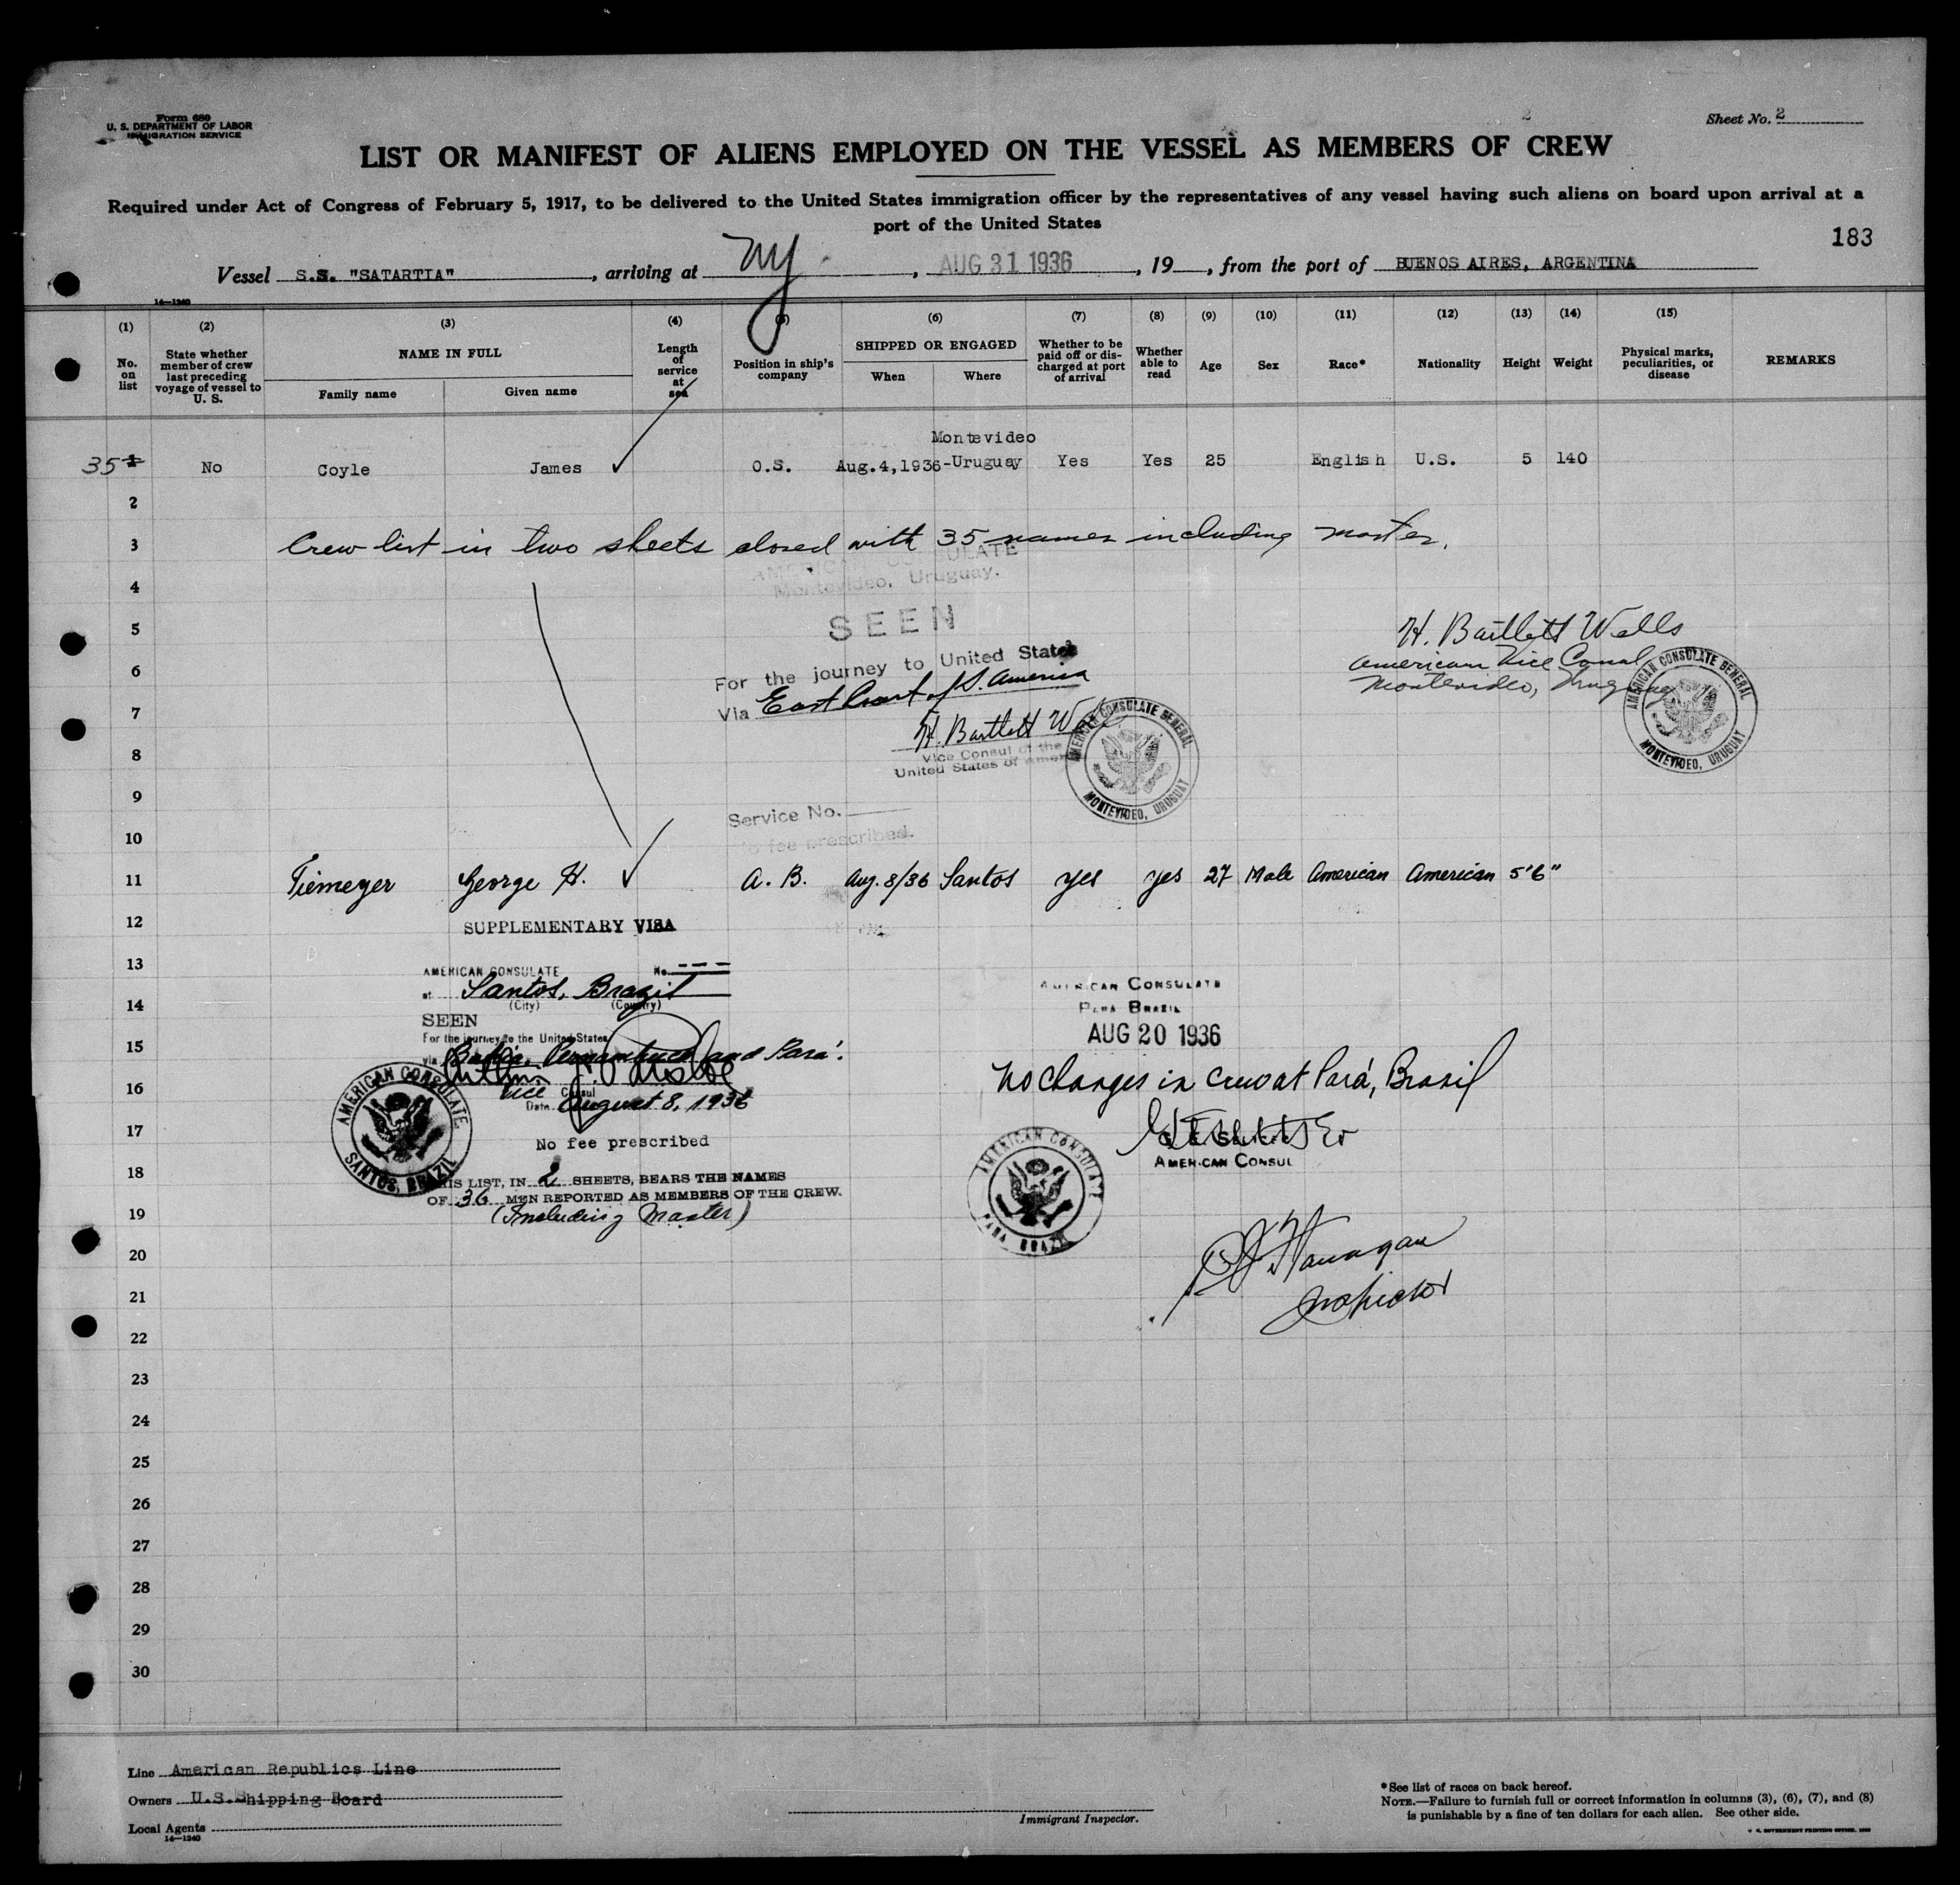 Form 680
U. S. DEPARTMENT OF LABOR
IMMIGRATION SERVICE
Sheet No. 2
2
LIST OR MANIFEST OF ALIENS EMPLOYED ON THE VESSEL AS MEMBERS OF CREW
Required under Act of Congress of February 5, 1917, to be delivered to the United States immigration officer by the representatives of any vessel having such aliens on board upon arrival at a
port of the United States
183
Vessel S.S. "SATARTIA", arriving at NY, AUG 31 1936, 19, from the port of BUENOS AIRES, ARGENTINA
14—1240
(1) (2) (3) (4) (5) (6) (7) (8) (9) (10) (11) (12) (13) (14) (15)
No. on list
State whether member of crew last preceding voyage of vessel to U. S.
NAME IN FULL
Family name
Given name
Length of service at sea
Position in ship's company
SHIPPED OR ENGAGED
When
Where
Whether to be paid off or discharged at port of arrival
Whether able to read
Age
Sex
Race*
Nationality
Height
Weight
Physical marks, peculiarities, or disease
REMARKS
Montevideo
35 1 No Coyle James ✓ O.S. Aug.4,1936-Uruguay Yes Yes 25 English U.S. 5 140
2
3 Crew list in two sheets closed with 35 names including master.
AMERICAN CONSULATE
Montevideo, Uruguay.
4
SEEN
5
H. Bartlett Wells
American Vice Consul
Montevideo, Uruguay
AMERICAN CONSULATE GENERAL
MONTEVIDEO, URUGUAY
For the journey to United States
6
Via East Coast of S. America
7
H. Bartlett W
Vice Consul of the
United States of Amer
AMERICAN CONSULATE GENERAL
MONTEVIDEO, URUGUAY
8
9
Service No.
No fee prescribed.
10
11 Tiemeyer George H. ✓ A. B. Aug. 8/36 Santos yes yes 27 Male American American 5'6"
12
SUPPLEMENTARY VISA
13
AMERICAN CONSULATE No. ---
at Santos, Brazil
(City) (Country)
14
SEEN
For the journey to the United States
15
via Bahia, Pernambuco and Pará.
16
Vice Consul
Date August 8, 1936
17
No fee prescribed
AMERICAN CONSULATE
SANTOS, BRAZIL
18
THIS LIST, IN 2 SHEETS, BEARS THE NAMES
OF 36 MEN REPORTED AS MEMBERS OF THE CREW.
(Including Master)
19
AMERICAN CONSULATE
PARA BRAZIL
AUG 20 1936
No changes in crew at Pará, Brasil
AMERICAN CONSUL
AMERICAN CONSULATE
PARA BRAZIL
Flanagan
Inspector
20
21
22
23
24
25
26
27
28
29
30
Line American Republics Line
Owners U.S.Shipping Board
Local Agents
14—1240
Immigrant Inspector.
*See list of races on back hereof.
NOTE.—Failure to furnish full or correct information in columns (3), (6), (7), and (8)
is punishable by a fine of ten dollars for each alien. See other side.
U. S. GOVERNMENT PRINTING OFFICE